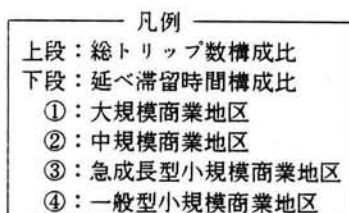 凡例
上段：総トリップ数構成比
下段：延べ滞留時間構成比
①：大規模商業地区
②：中規模商業地区
③：急成長型小規模商業地区
④：一般型小規模商業地区